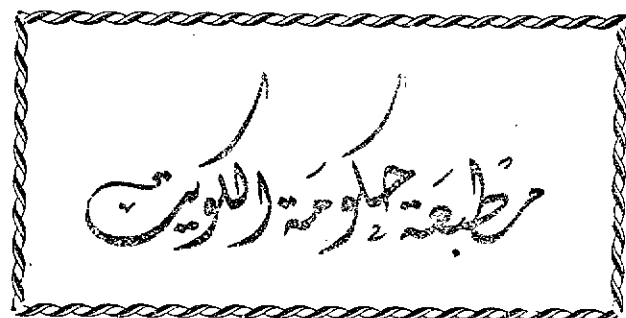 مطبعة حكومة الكويت